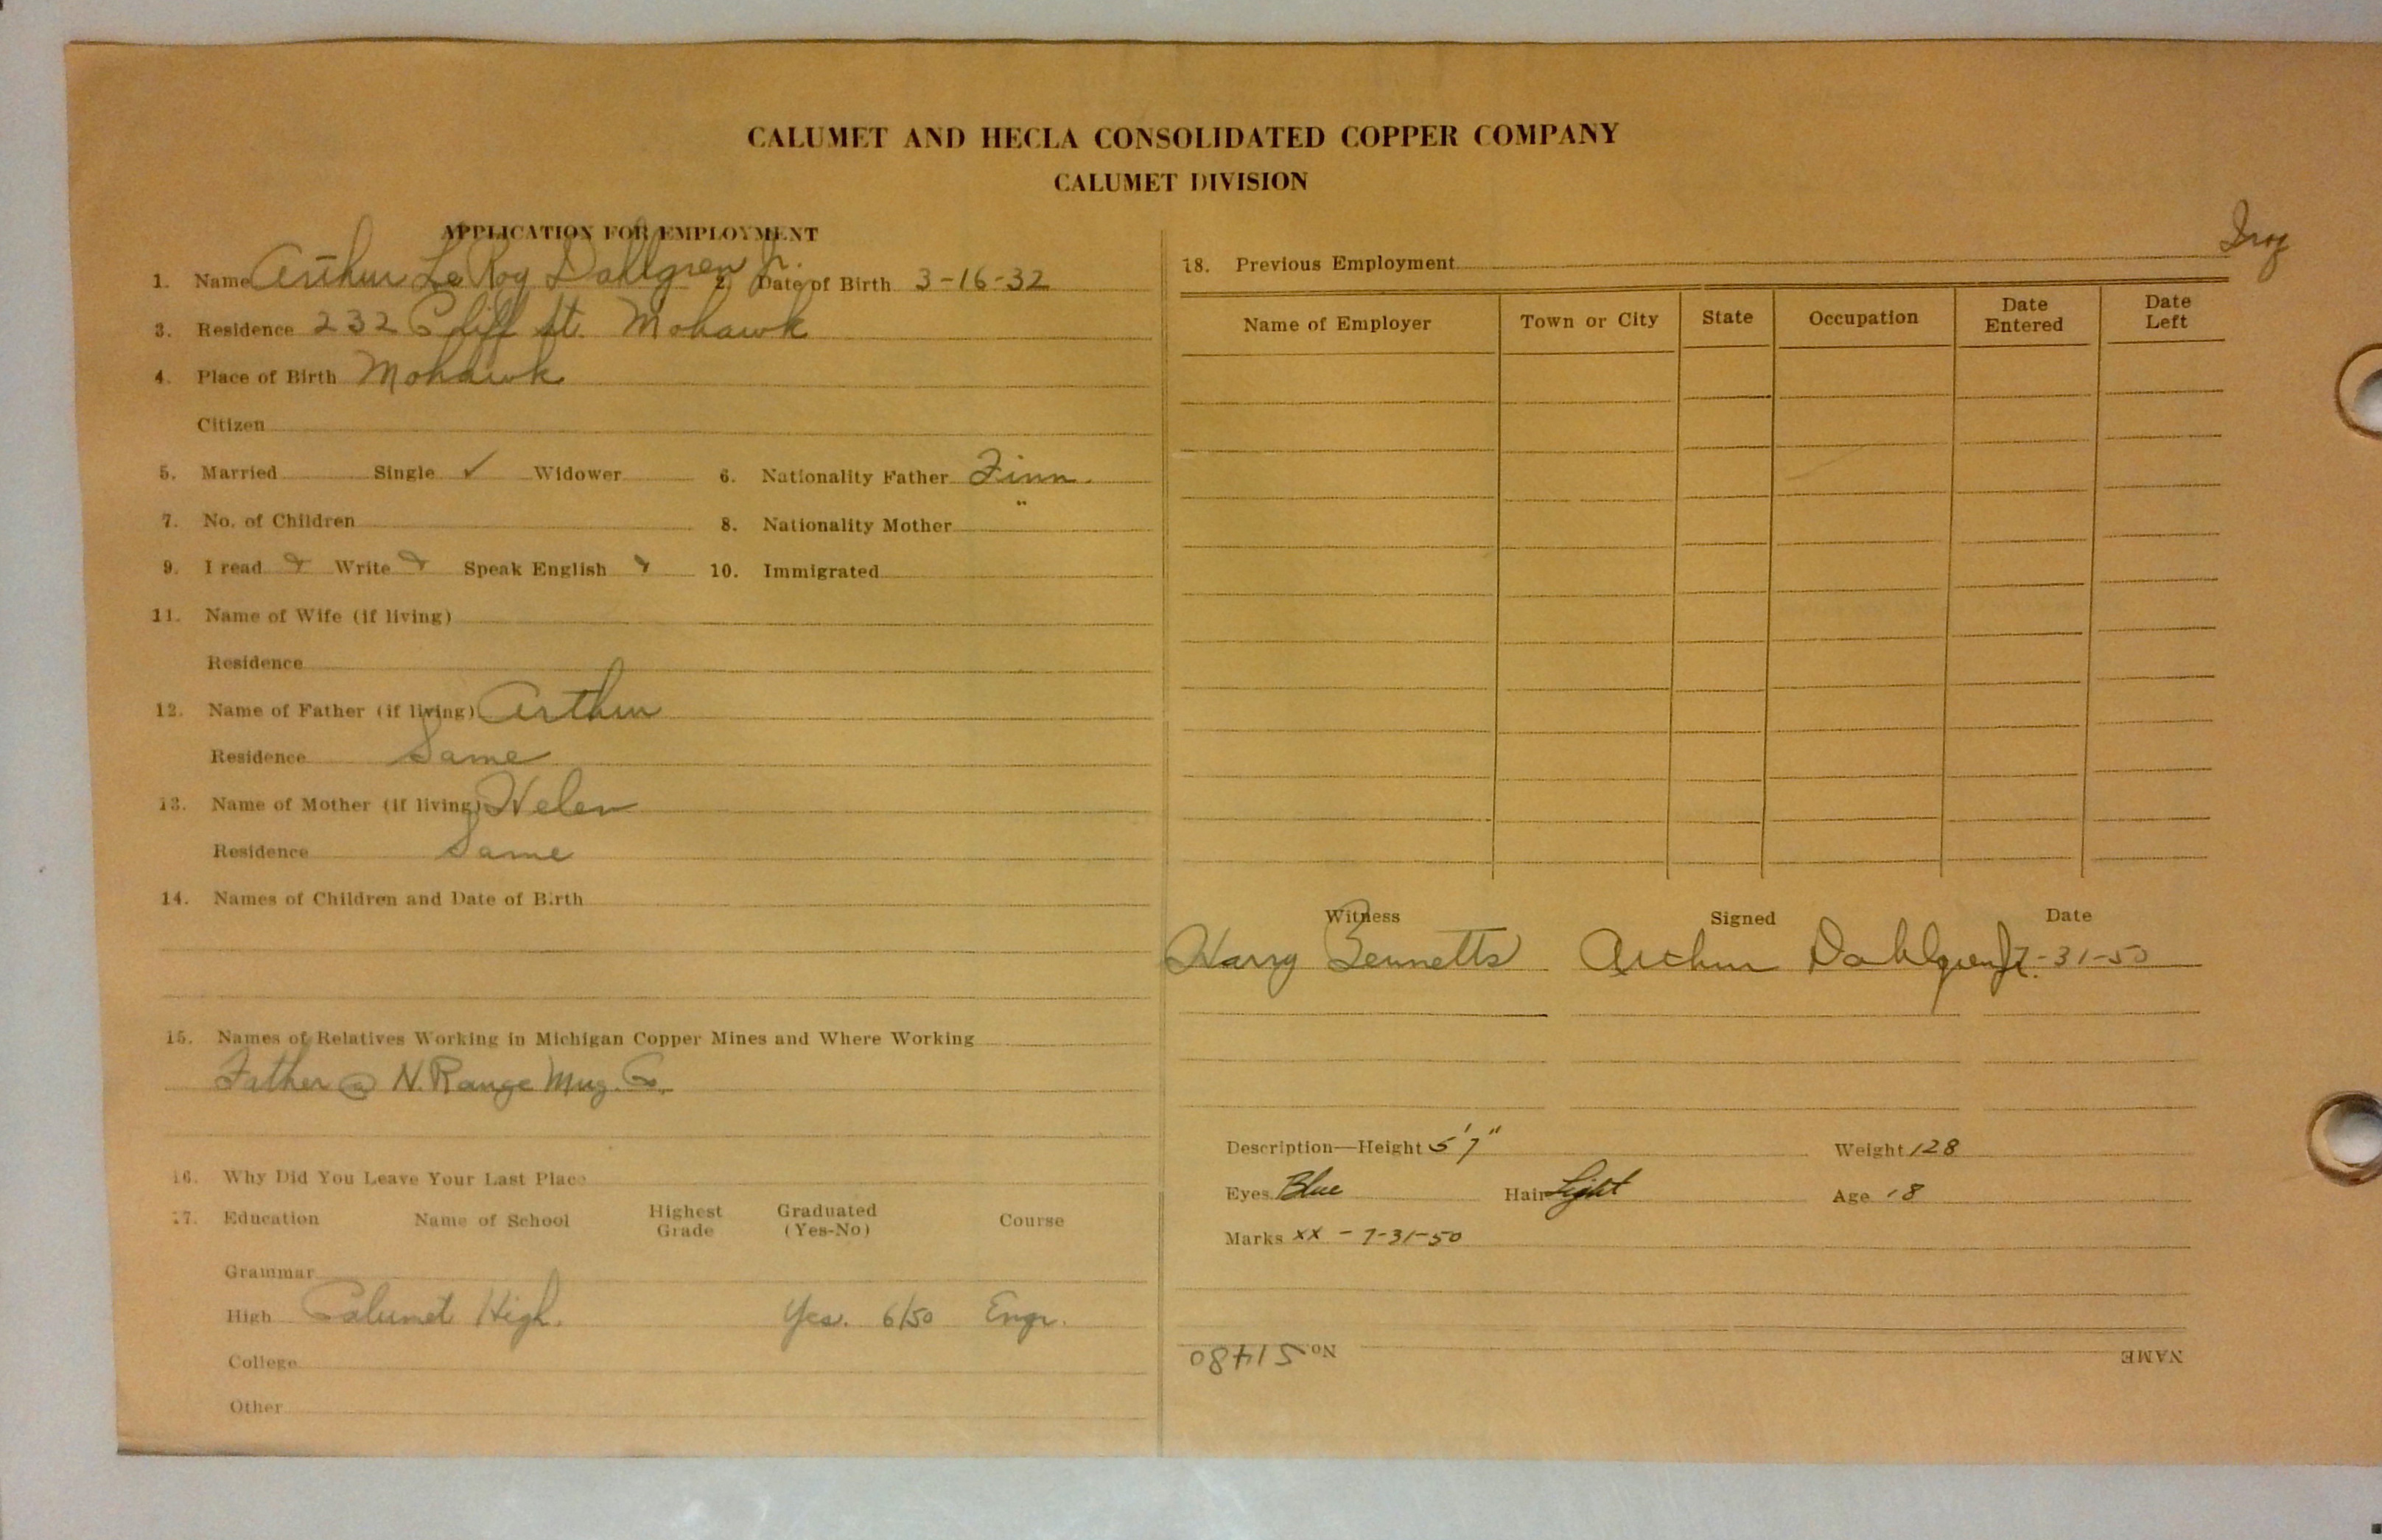 CALUMET AND HECLA CONSOLIDATED COPPER COMPANY
CALUMET DIVISION
APPLICATION FOR EMPLOYMENT
1. Name Arthur LeRoy Dahlgren Jr. 2. Date of Birth 3-16-32
3. Residence 232 Cliff St. Mohawk
4. Place of Birth Mohawk
Citizen
5. Married Single ✓ Widower 6. Nationality Father Finn.
7. No. of Children 8. Nationality Mother "
9. I read Write Speak English 10. Immigrated
11. Name of Wife (if living)
Residence
12. Name of Father (if living) Arthur
Residence Same
13. Name of Mother (if living) Helen
Residence Same
14. Names of Children and Date of Birth
15. Names of Relatives Working in Michigan Copper Mines and Where Working
Father @ N. Range Mng. Co.
16. Why Did You Leave Your Last Place
17. Education Name of School Highest Grade Graduated (Yes-No) Course
Grammar
High Calumet High. Yes. 6/50 Engr.
College
Other
18. Previous Employment
Name of Employer Town or City State Occupation Date Entered Date Left
Witness Signed Date
Harry Bennetts Arthur Dahlgren Jr. 7-31-50
Description—Height 5'7" Weight 128
Eyes Blue Hair Light Age 18
Marks xx - 7-31-50
No. 51480 NAME